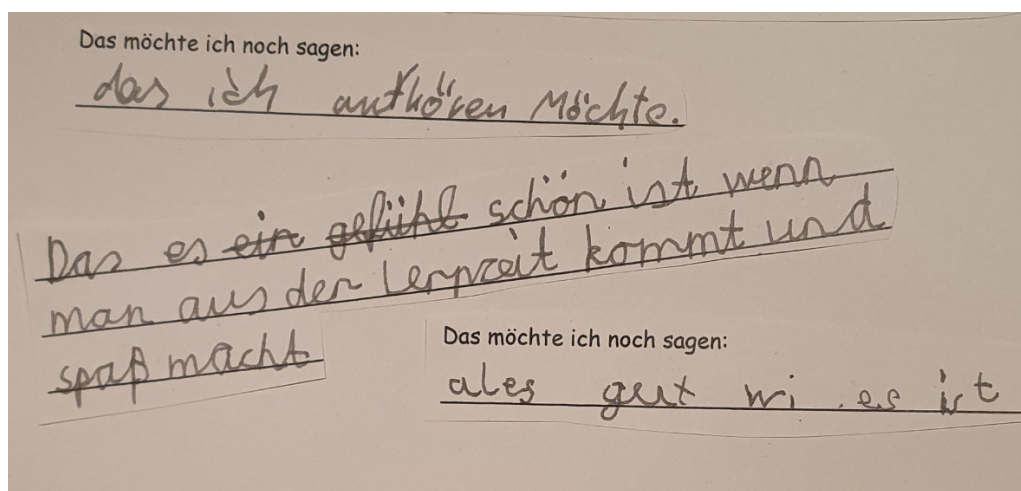 Das möchte ich noch sagen:
das ich aufhören Möchte.
Das es ein gefühl schön ist wenn
man aus der Lernzeit kommt und
spaß macht
Das möchte ich noch sagen:
ales gut wi es ist